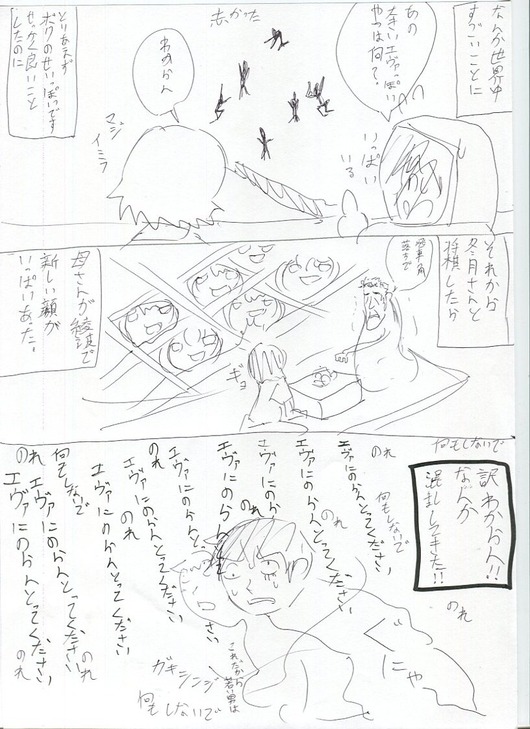 なんか世界中
すごいことに
あの
大きいエヴァっぽい
やつは何？
いっぱい
いる
志かった
わからん
マジ
イミフ
とりあえず
ボクのせいっぽいです
せっかく良いこと
したのに
それから
冬月さんと
将棋したら
飛車角
落ちで
ギョ
母さんが綾波で
新しい顔が
いっぱいあった。
訳わからん!!
なんか
混乱してきた!!
何もしないで
のれ
エヴァにのらんとってください
何もしないで
のれ
エヴァにのらんとってください
のれ
エヴァにのらんとってください
のれ
エヴァにのらんとってください
のれ
エヴァにのらんとってください
何もしないで
エヴァにのらんとってください
のれ
のれ
エヴァにのらんとってください
のれ
のれ
ぐにゃ
これだから
若い男は
ガキシンジ
何もしないで